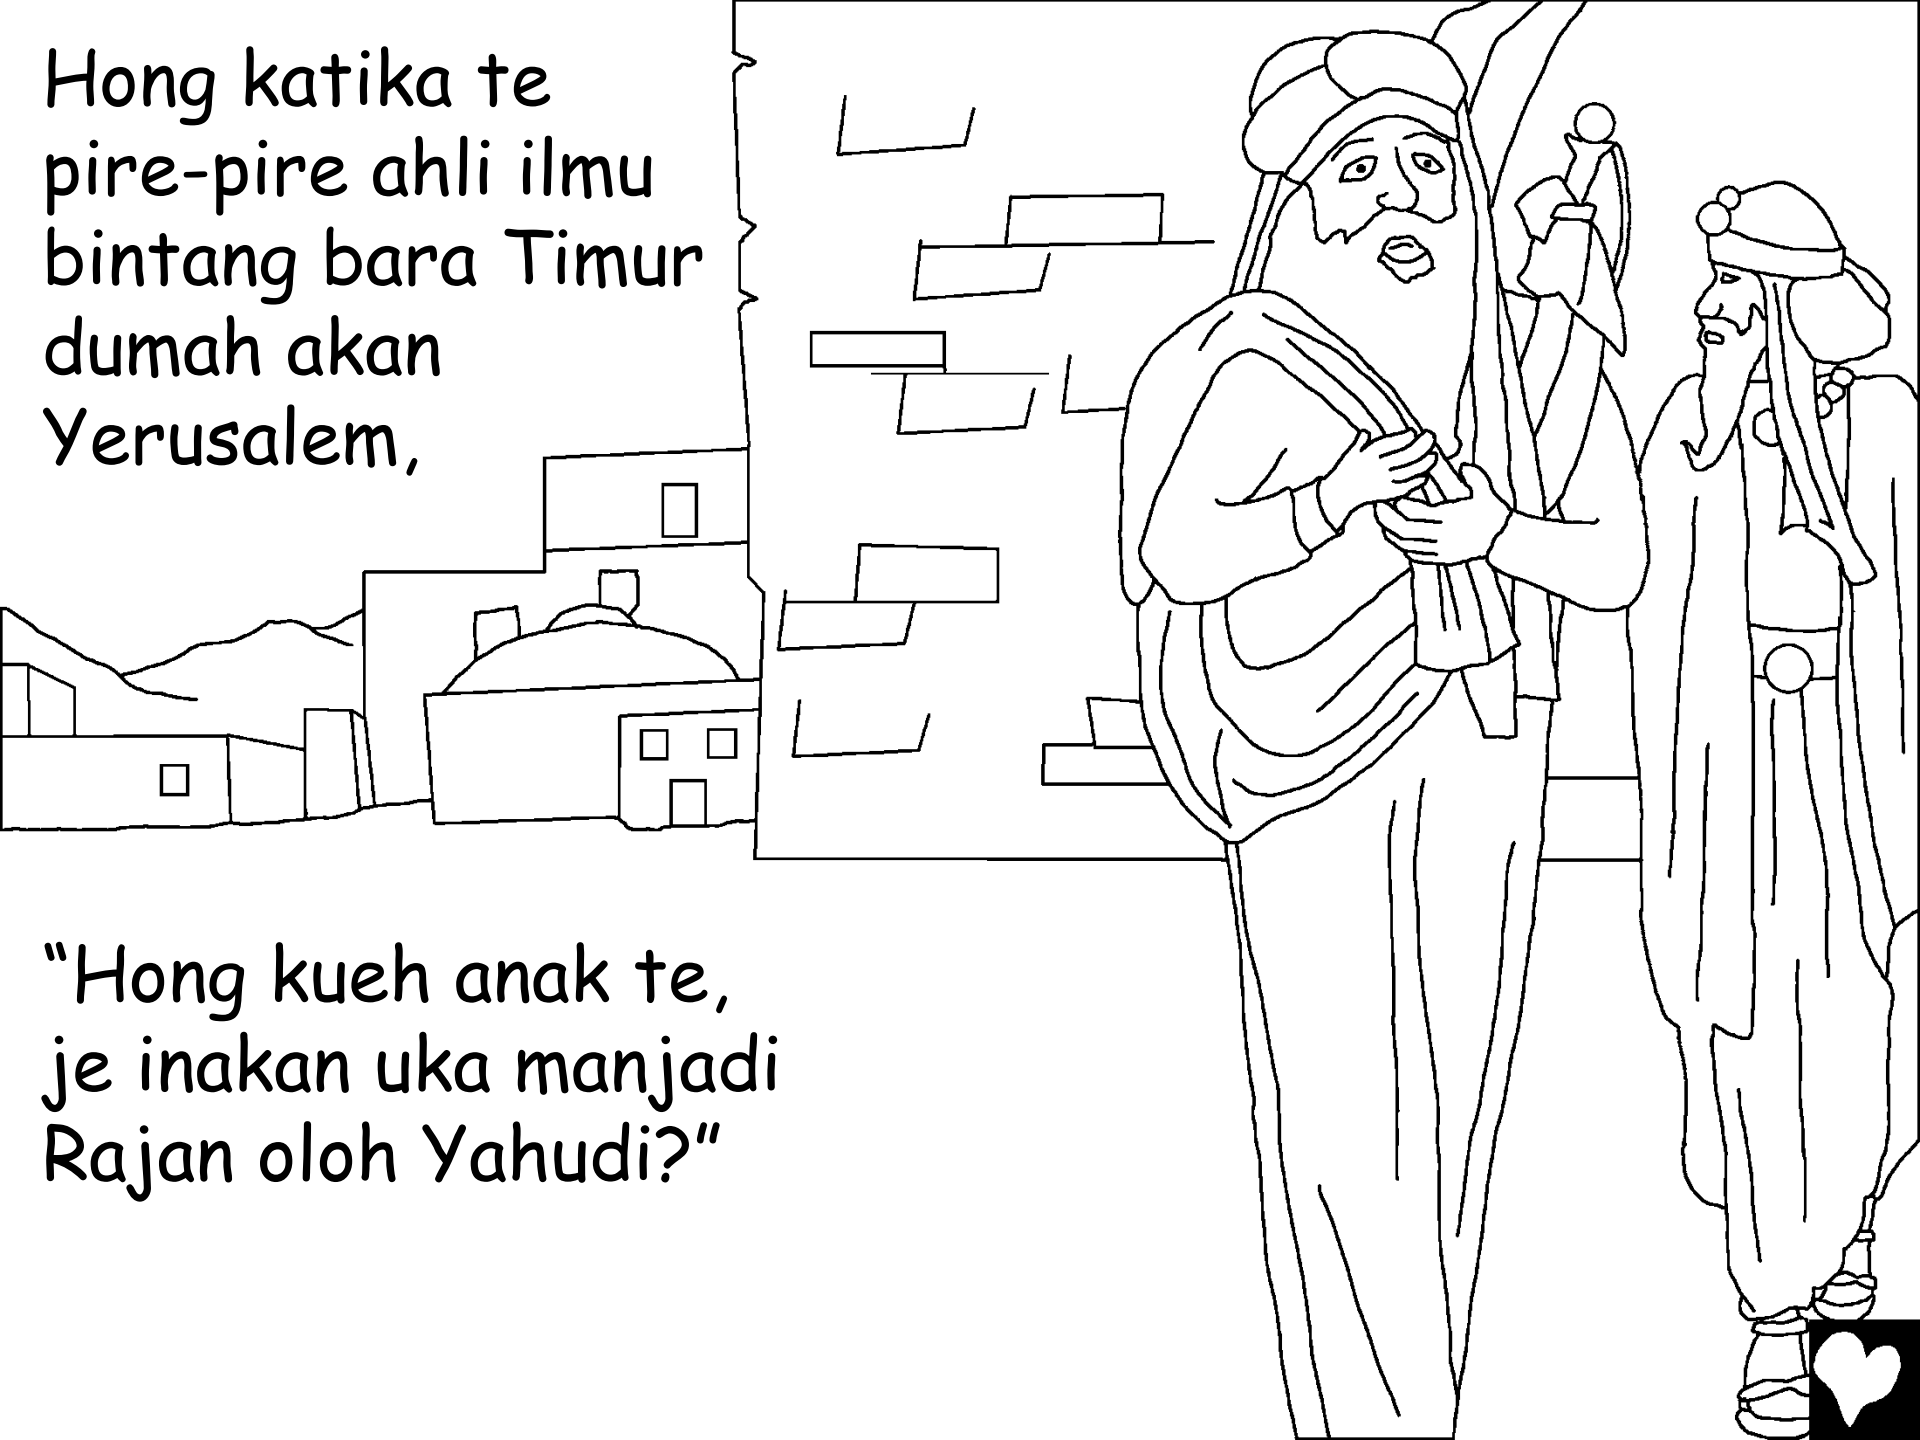 Hong katika te
pire-pire ahli ilmu
bintang bara Timur
dumah akan
Yerusalem,
“Hong kueh anak te,
je inakan uka manjadi
Rajan oloh Yahudi?”